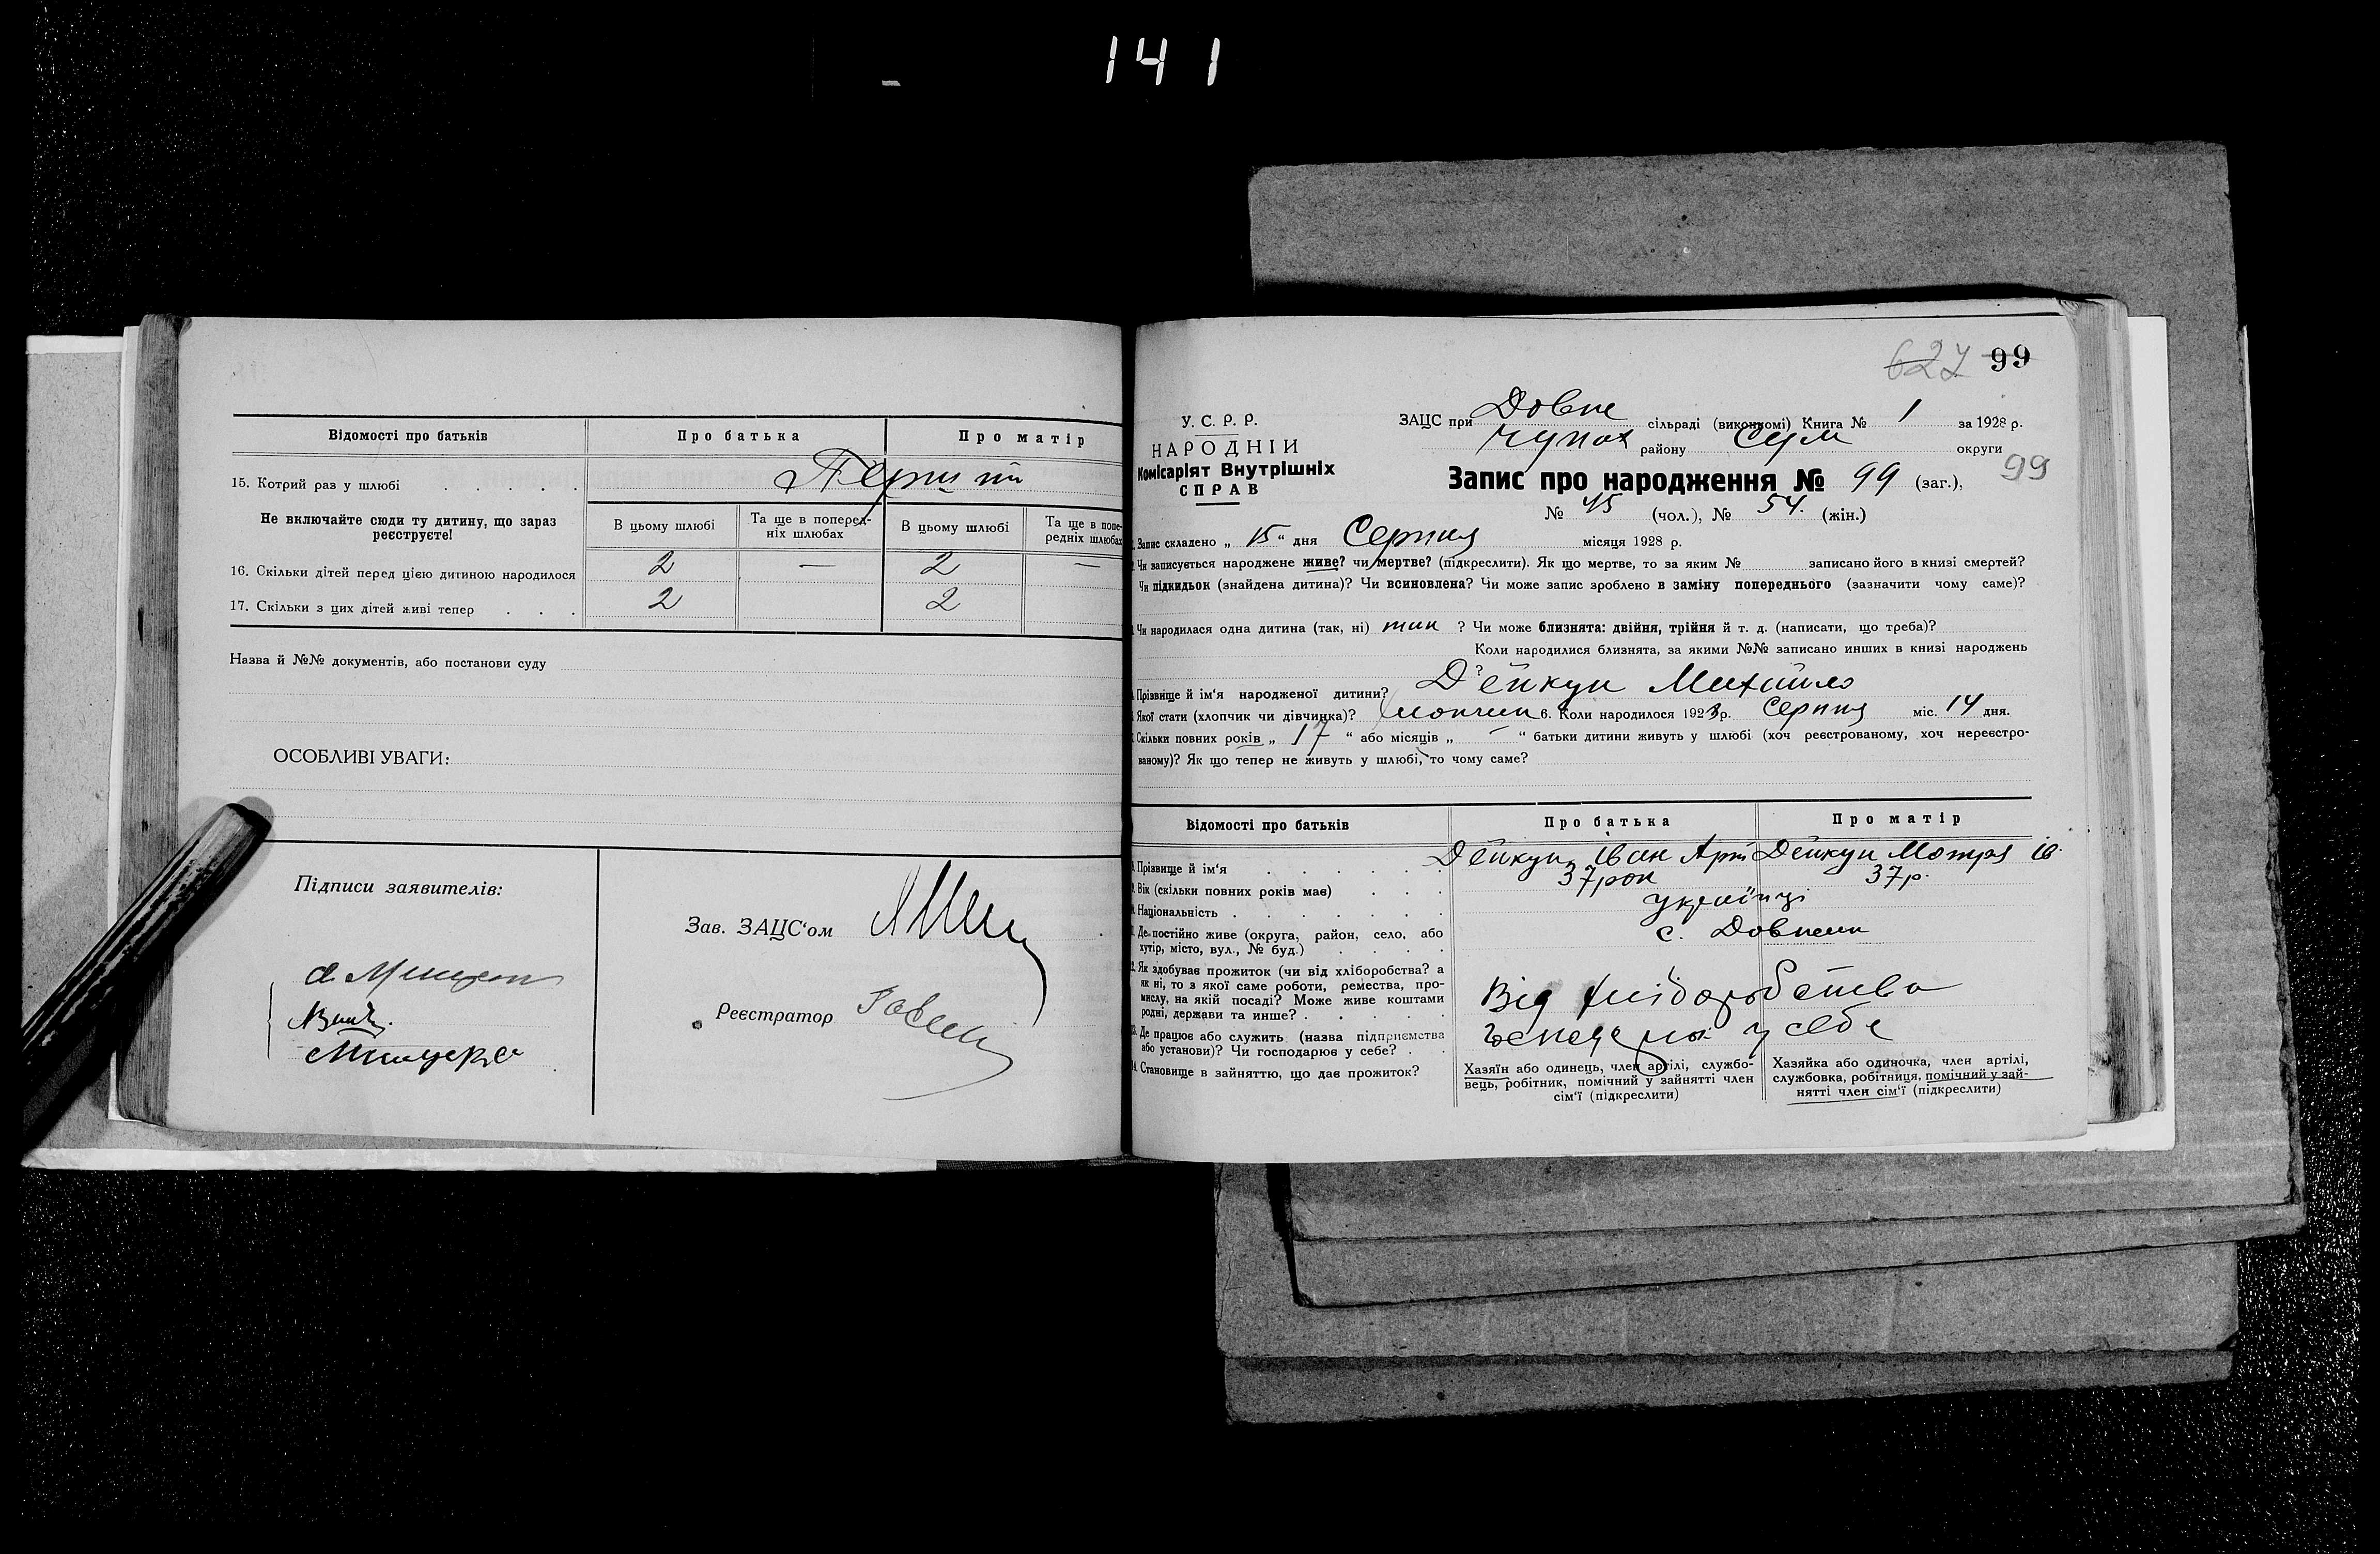 141
Відомості про батьків
Про батька
Про матір
15. Котрий раз у шлюбі
Перший
Не включайте сюди ту дитину, що зараз реєструєте!
В цьому шлюбі
Та ще в поперед-
ніх шлюбах
В цьому шлюбі
Та ще в попе-
редніх шлюбах
16. Скільки дітей перед цією дитиною народилося 2 — 2 —
17. Скільки з цих дітей живі тепер 2 2
Назва й №№ документів, або постанови суду
ОСОБЛИВІ УВАГИ:
Підписи заявителів:
Зав. ЗАЦС'ом
Реєстратор
627 99
У. С. Р. Р.
НАРОДНІЙ
Комісаріят Внутрішніх
СПРАВ
ЗАЦС при Довже сільраді (виконкомі) Книга № 1 за 1928 р.
Чупах району Сум округи
Запис про народження № 99 (заг.), 99
№ 45 (чол.), № 54. (жін.)
Запис складено „ 15 “ дня Серпня місяця 1928 р.
Чи записується народжене живе? чи мертве? (підкреслити). Як що мертве, то за яким № записано його в книзі смертей?
Чи підкидьок (знайдена дитина)? Чи всиновлена? Чи може запис зроблено в заміну попереднього (зазначити чому саме)?
Чи народилася одна дитина (так, ні) так ? Чи може близнята: двійня, трійня й т. д. (написати, що треба)?
Коли народилися близнята, за якими №№ записано инших в книзі народжень
?
Прізвище й ім'я народженої дитини? Дейкун Михайло
Якої стати (хлопчик чи дівчинка)? хлопчик 6. Коли народилося 1928 р. Серпня міс. 14 дня.
Скільки повних років „ 17 “ або місяців „ — “ батьки дитини живуть у шлюбі (хоч реєстрованому, хоч нереєстро-
ваному)? Як що тепер не живуть у шлюбі, то чому саме?
Відомості про батьків
Про батька
Про матір
Прізвище й ім'я Дейкун Іван Арт Дейкун Мотря Ів.
Вік (скільки повних років має) 37 рок 37 р.
Національність українці
Де постійно живе (округа, район, село, або
хутір, місто, вул., № буд.) с.
Як здобуває прожиток (чи від хліборобства? а
як ні, то з якої саме роботи, ремества, про-
мислу, на якій посаді? Може живе коштами
родні, держави та инше?
Від хліборобства
Де працює або служить (назва підприємства
або установи)? Чи господарює у себе?
у себе
14. Становище в зайняттю, що дає прожиток?
Хазяїн або одинець, член артілі, службо-
вець, робітник, помічний у зайнятті член
сім'ї (підкреслити)
Хазяйка або одиночка, член артілі,
службовка, робітниця, помічний у зай-
нятті член сім'ї (підкреслити)